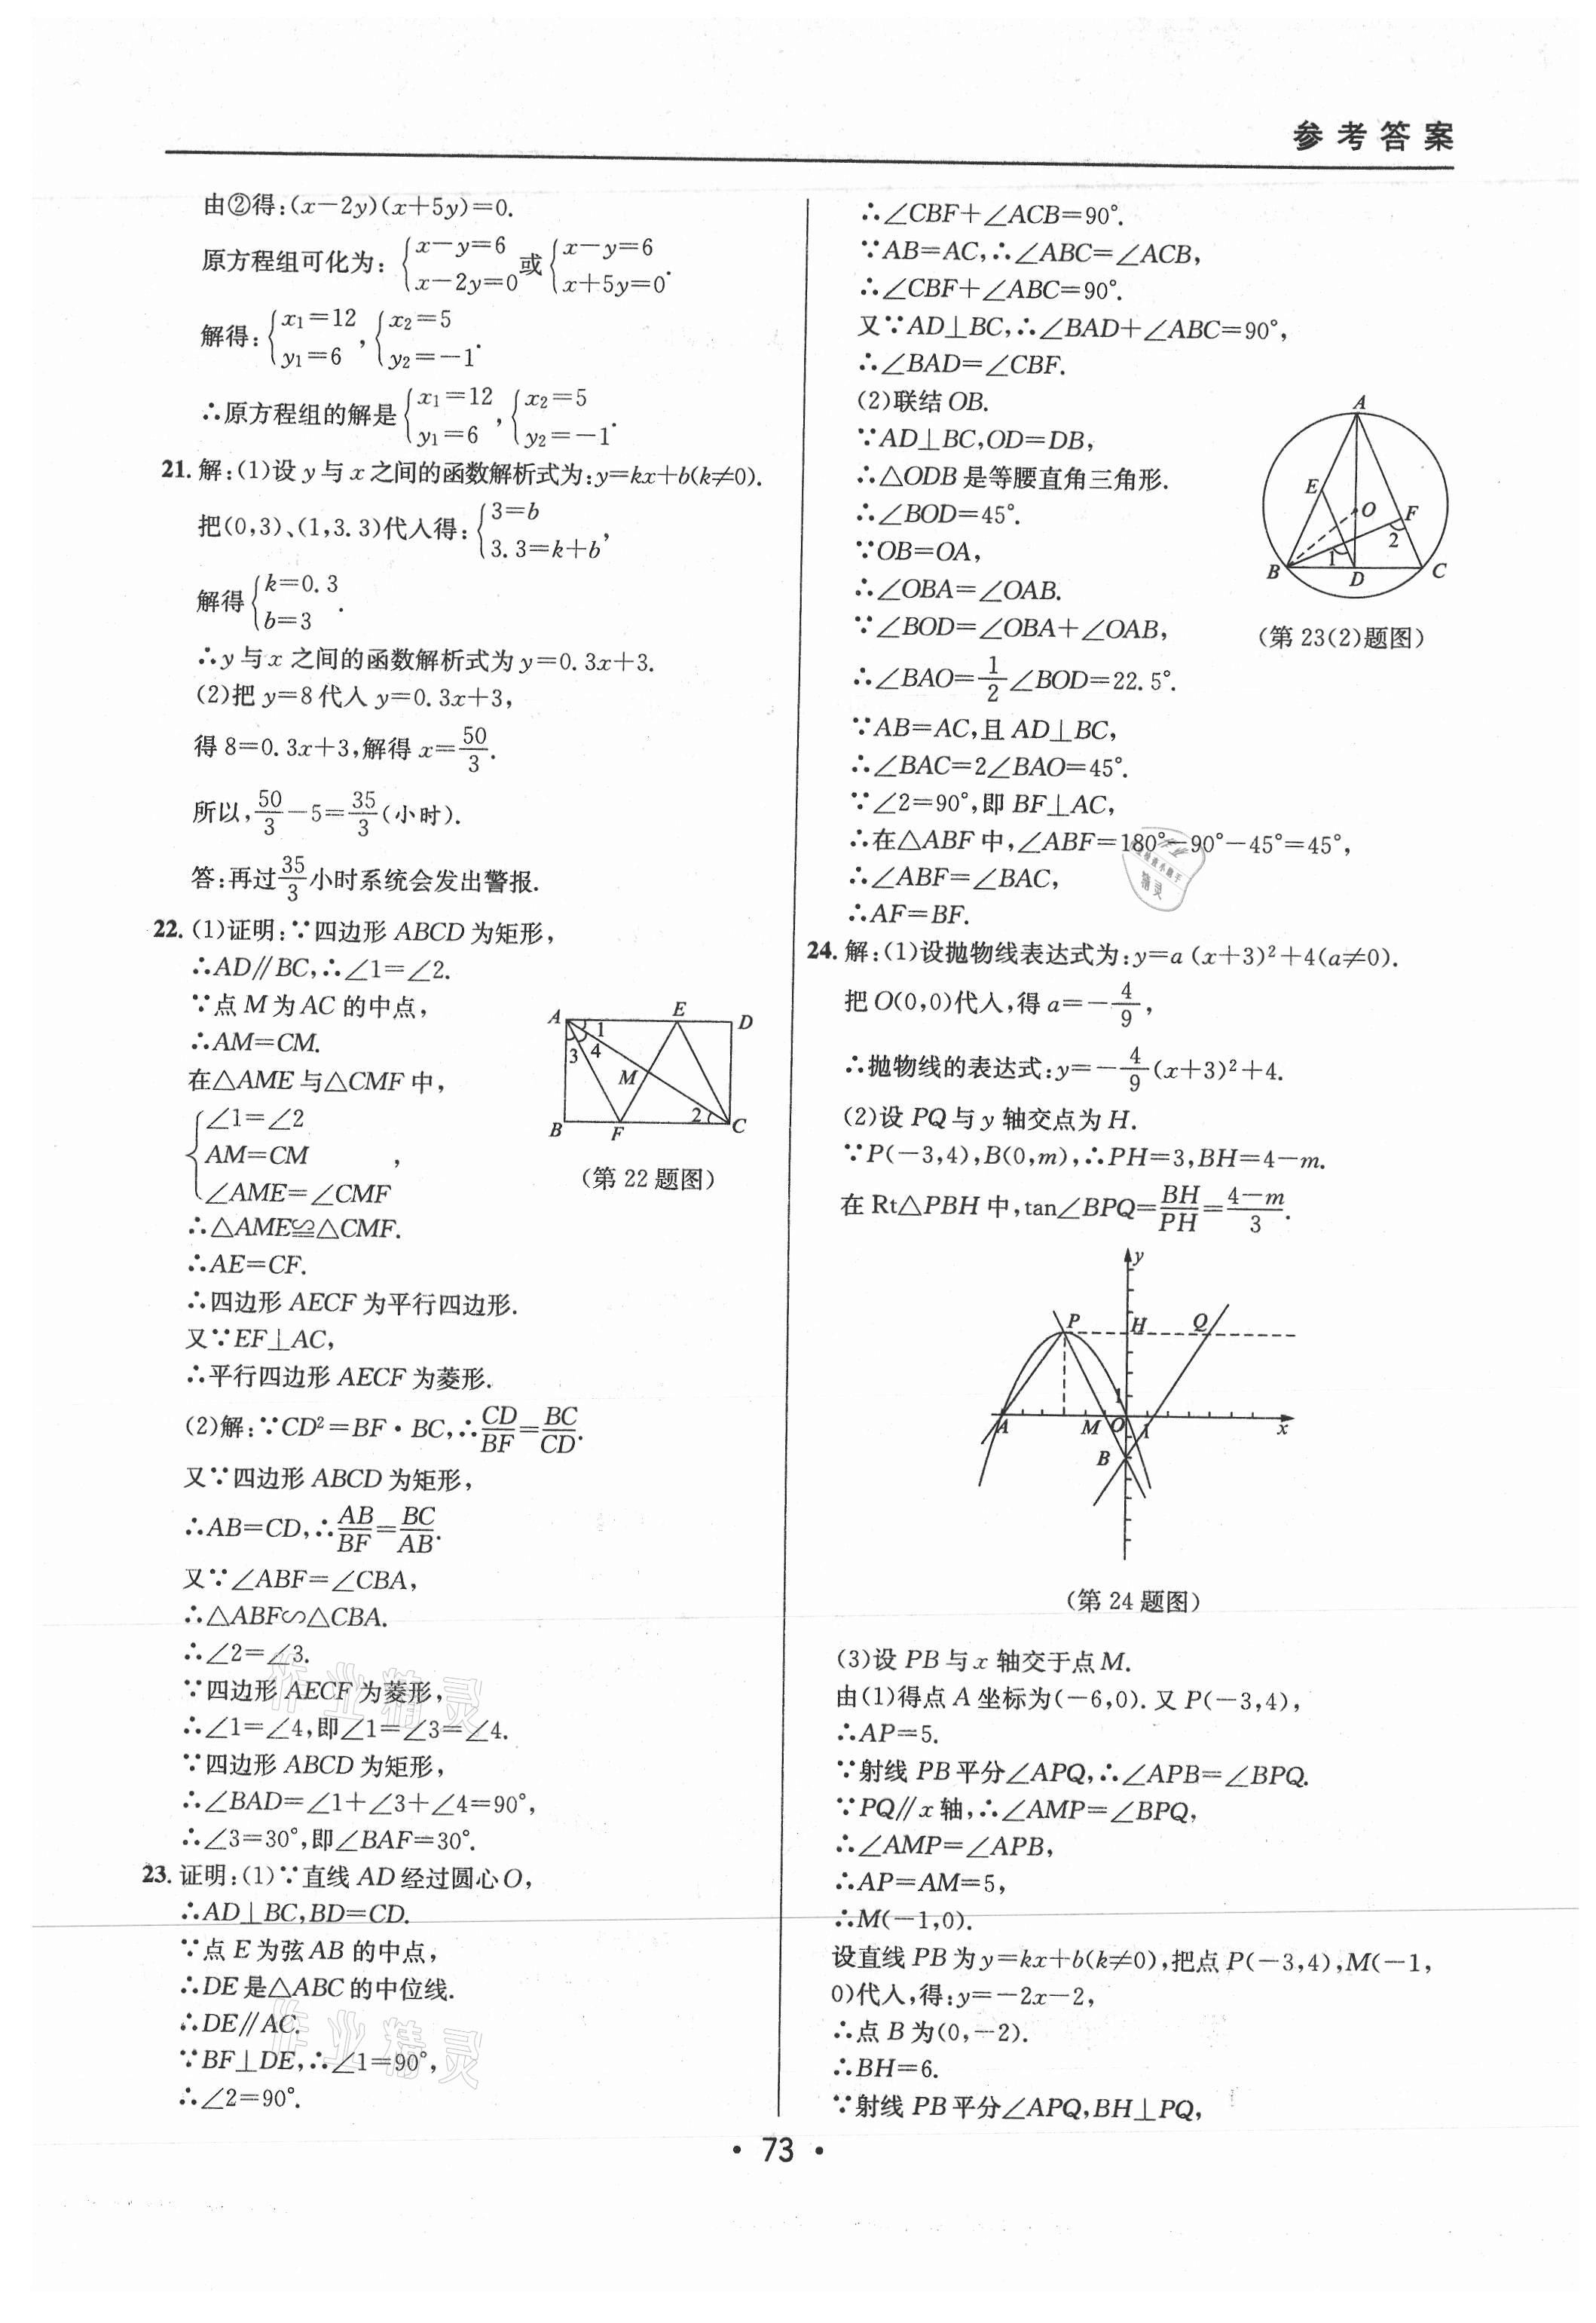 参考答案
由②得:(x−2y)(x+5y)=0.
原方程组可化为:{x−y=6 x−2y=0 或{x−y=6 x+5y=0.
解得:{x₁=12 y₁=6,{x₂=5 y₂=−1.
∴原方程组的解是{x₁=12 y₁=6,{x₂=5 y₂=−1.
21. 解:(1)设 y 与 x 之间的函数解析式为:y=kx+b(k≠0).
把(0,3)、(1,3.3)代入得:{3=b 3.3=k+b,
解得{k=0.3 b=3.
∴y 与 x 之间的函数解析式为 y=0.3x+3.
(2)把 y=8 代入 y=0.3x+3,
得 8=0.3x+3,解得 x=50/3.
所以,50/3−5=35/3(小时).
答:再过35/3小时系统会发出警报.
22. (1)证明:∵四边形 ABCD 为矩形,
∴AD∥BC,∴∠1=∠2.
∵点 M 为 AC 的中点,
∴AM=CM.
在△AME 与△CMF 中,
{∠1=∠2
AM=CM,
∠AME=∠CMF
∴△AME≌△CMF.
∴AE=CF.
∴四边形 AECF 为平行四边形.
又∵EF⊥AC,
∴平行四边形 AECF 为菱形.
A E D 1 3 4 M 2 B F C
(第 22 题图)
(2)解:∵CD²=BF·BC,∴CD/BF=BC/CD.
又∵四边形 ABCD 为矩形,
∴AB=CD,∴AB/BF=BC/AB.
又∵∠ABF=∠CBA,
∴△ABF∽△CBA.
∴∠2=∠3.
∵四边形 AECF 为菱形,
∴∠1=∠4,即∠1=∠3=∠4.
∵四边形 ABCD 为矩形,
∴∠BAD=∠1+∠3+∠4=90°,
∴∠3=30°,即∠BAF=30°.
23. 证明:(1)∵直线 AD 经过圆心 O,
∴AD⊥BC,BD=CD.
∵点 E 为弦 AB 的中点,
∴DE 是△ABC 的中位线.
∴DE∥AC.
∵BF⊥DE,∴∠1=90°,
∴∠2=90°.
作业精灵
作业精灵
∴∠CBF+∠ACB=90°.
∵AB=AC,∴∠ABC=∠ACB,
∴∠CBF+∠ABC=90°.
又∵AD⊥BC,∴∠BAD+∠ABC=90°,
∴∠BAD=∠CBF.
(2)联结 OB.
∵AD⊥BC,OD=DB,
∴△ODB 是等腰直角三角形.
∴∠BOD=45°.
∵OB=OA,
∴∠OBA=∠OAB.
∵∠BOD=∠OBA+∠OAB,
A E O F 2 1 B D C
(第 23(2)题图)
∴∠BAO=1/2∠BOD=22.5°.
∵AB=AC,且 AD⊥BC,
∴∠BAC=2∠BAO=45°.
∵∠2=90°,即 BF⊥AC,
∴在△ABF 中,∠ABF=180°−90°−45°=45°,
∴∠ABF=∠BAC,
∴AF=BF.
24. 解:(1)设抛物线表达式为:y=a(x+3)²+4(a≠0).
把 O(0,0)代入,得 a=−4/9,
∴抛物线的表达式:y=−4/9(x+3)²+4.
(2)设 PQ 与 y 轴交点为 H.
∵P(−3,4),B(0,m),∴PH=3,BH=4−m.
在 Rt△PBH 中,tan∠BPQ=BH/PH=4−m/3.
y P H Q 1 A M O 1 x B
(第 24 题图)
(3)设 PB 与 x 轴交于点 M.
由(1)得点 A 坐标为(−6,0).又 P(−3,4),
∴AP=5.
∵射线 PB 平分∠APQ,∴∠APB=∠BPQ.
∵PQ∥x 轴,∴∠AMP=∠BPQ,
∴∠AMP=∠APB,
∴AP=AM=5,
∴M(−1,0).
设直线 PB 为 y=kx+b(k≠0),把点 P(−3,4),M(−1,
0)代入,得:y=−2x−2,
∴点 B 为(0,−2).
∴BH=6.
∵射线 PB 平分∠APQ,BH⊥PQ,
• 73 •